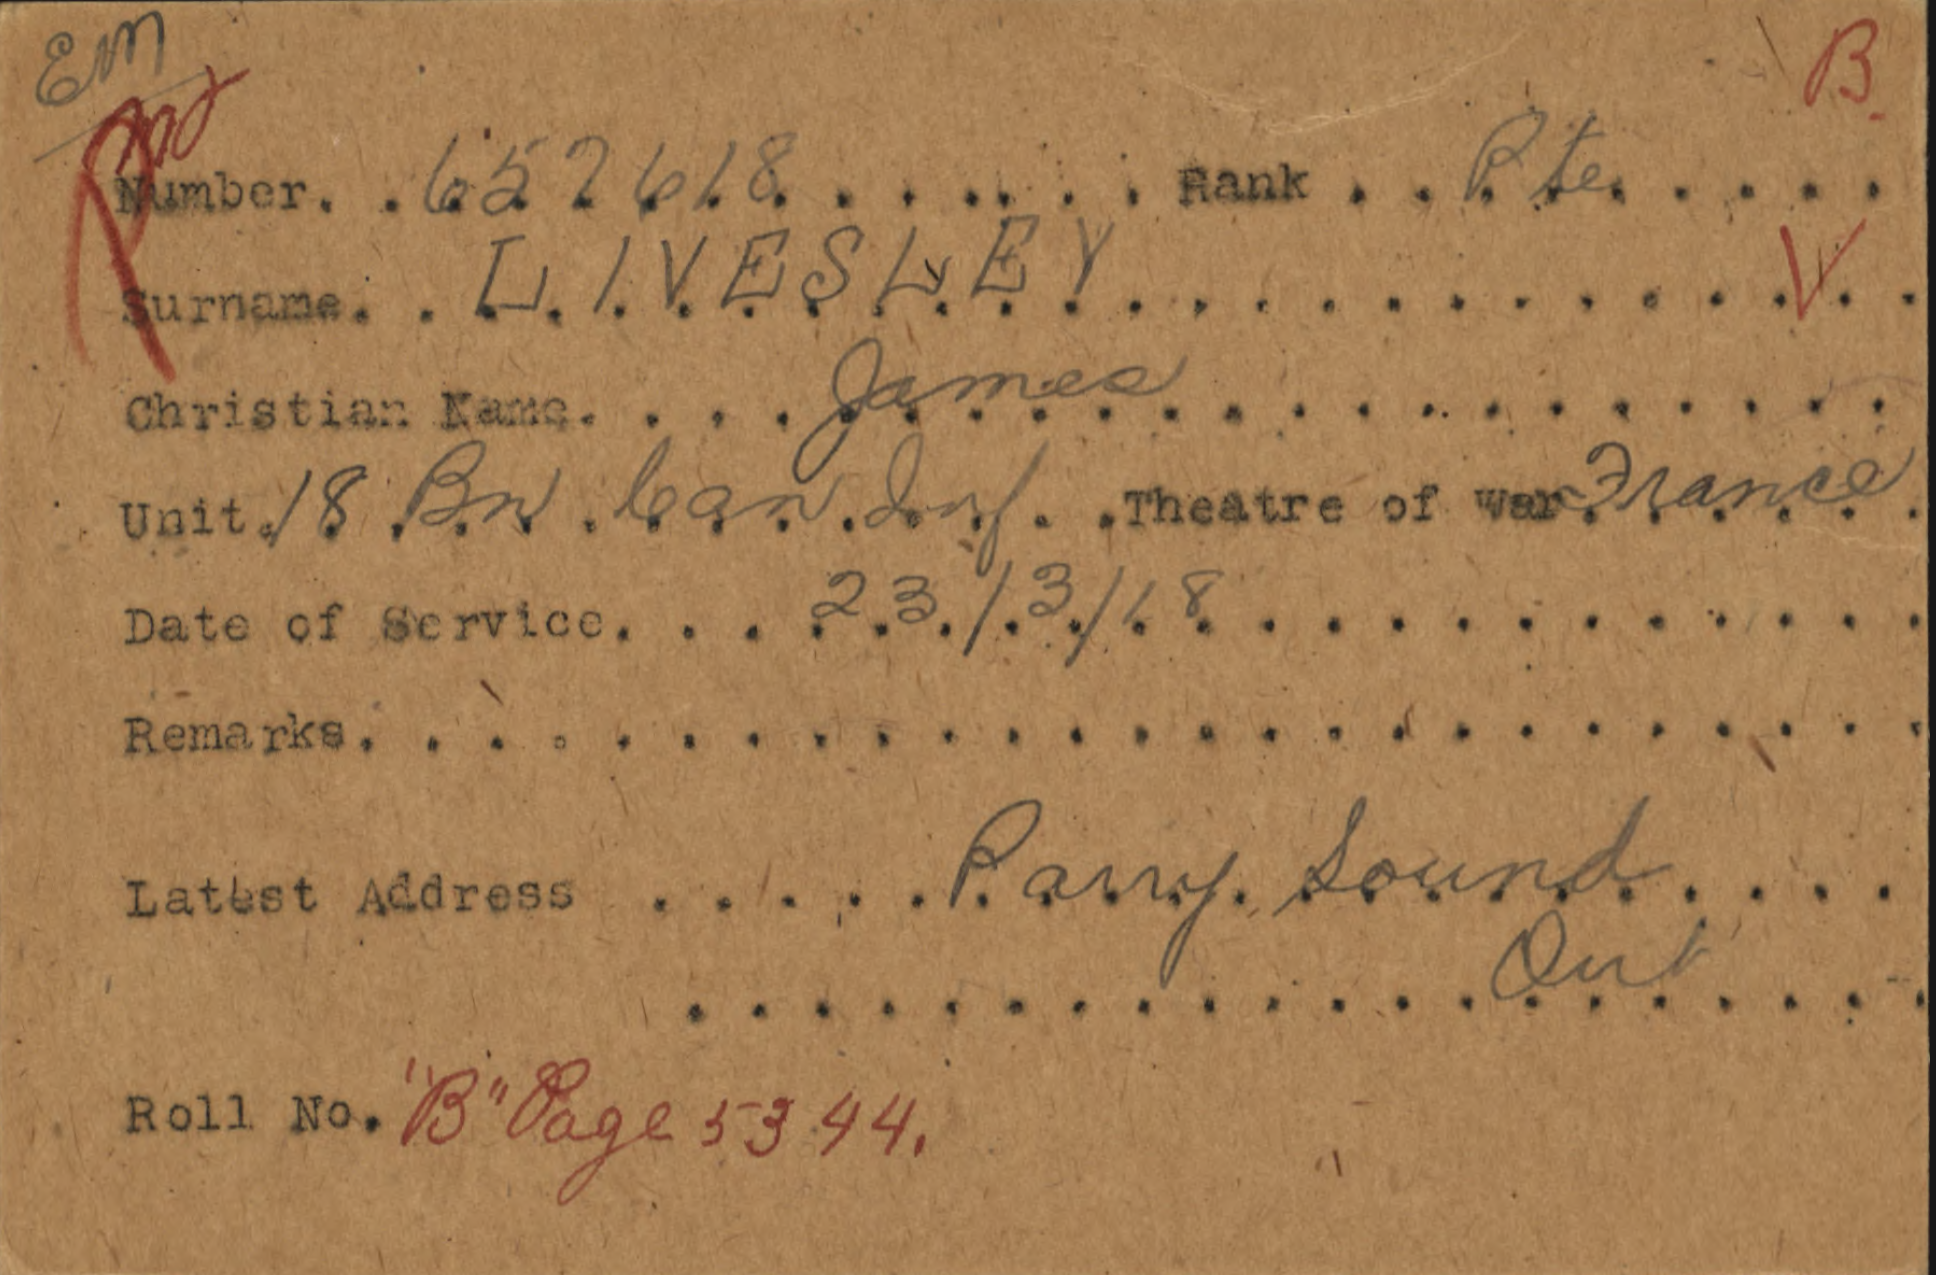 Em
B
Number. . 657618 . . . . . . Rank . . Pte. . . . .
Surname. . LIVESLEY . . . . . . . . . . . V . .
Christian Name. . . . James . . . . . . . . . . .
Unit. 18 Bn Can Inf. . Theatre of War France .
Date of Service. . . . 23/3/18 . . . . . . . . . . .
Remarks. . . . . . . . . . . . . . . . . . . . . . . . .
Latest Address . . . . . Parry Sound . . . .
. . . . . . . . . . . . Ont . . . .
Roll No. "B" Page 5344.